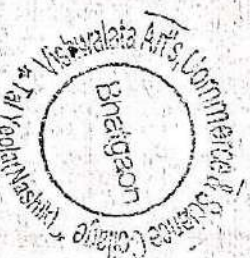 Vishwalata Arts, Commerce & Science College * Tal.Yeola(Nashik) *
Bhatgaon